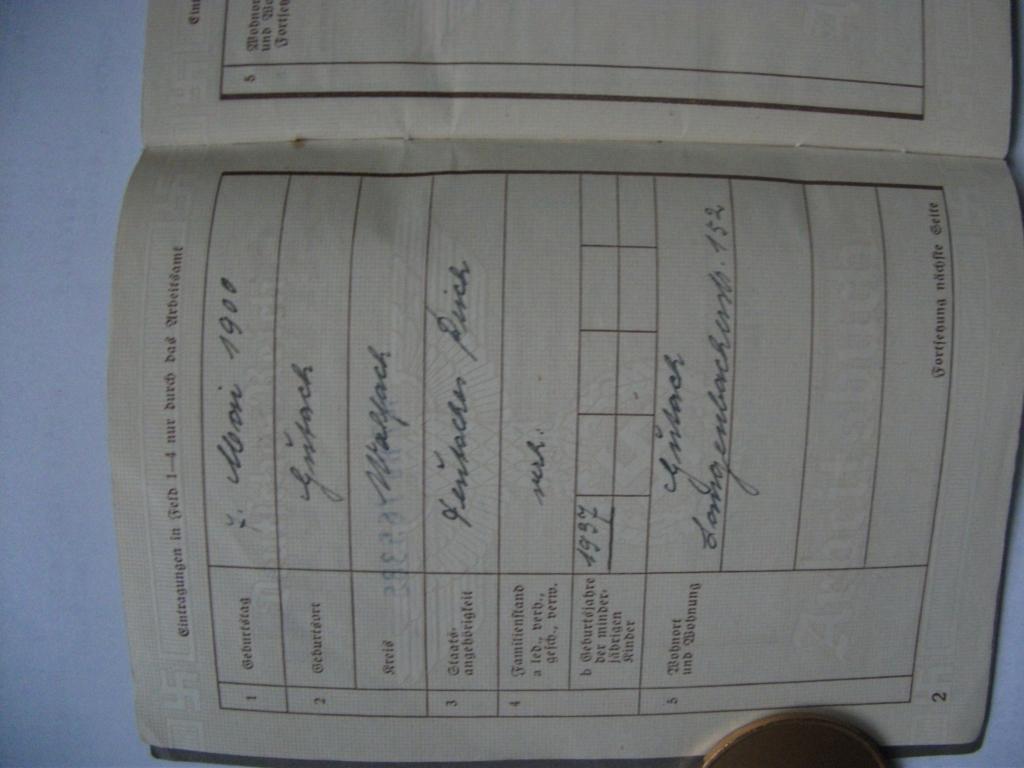 Eintragungen in Feld 1–4 nur durch das Arbeitsamt
1 Geburtstag Mai 1900
2 Geburtsort Gutach
Kreis Wolfach
3 Staats-
angehörigkeit Deutsches Reich
4 Familienstand
a led., verh.,
gesch., verw. verh.
b Geburtsjahre
der minder-
jährigen
Kinder 1937
5 Wohnort
und Wohnung Gutach
Langenbacherstr. 152
Fortsetzung nächste Seite
2
5 Wohnort